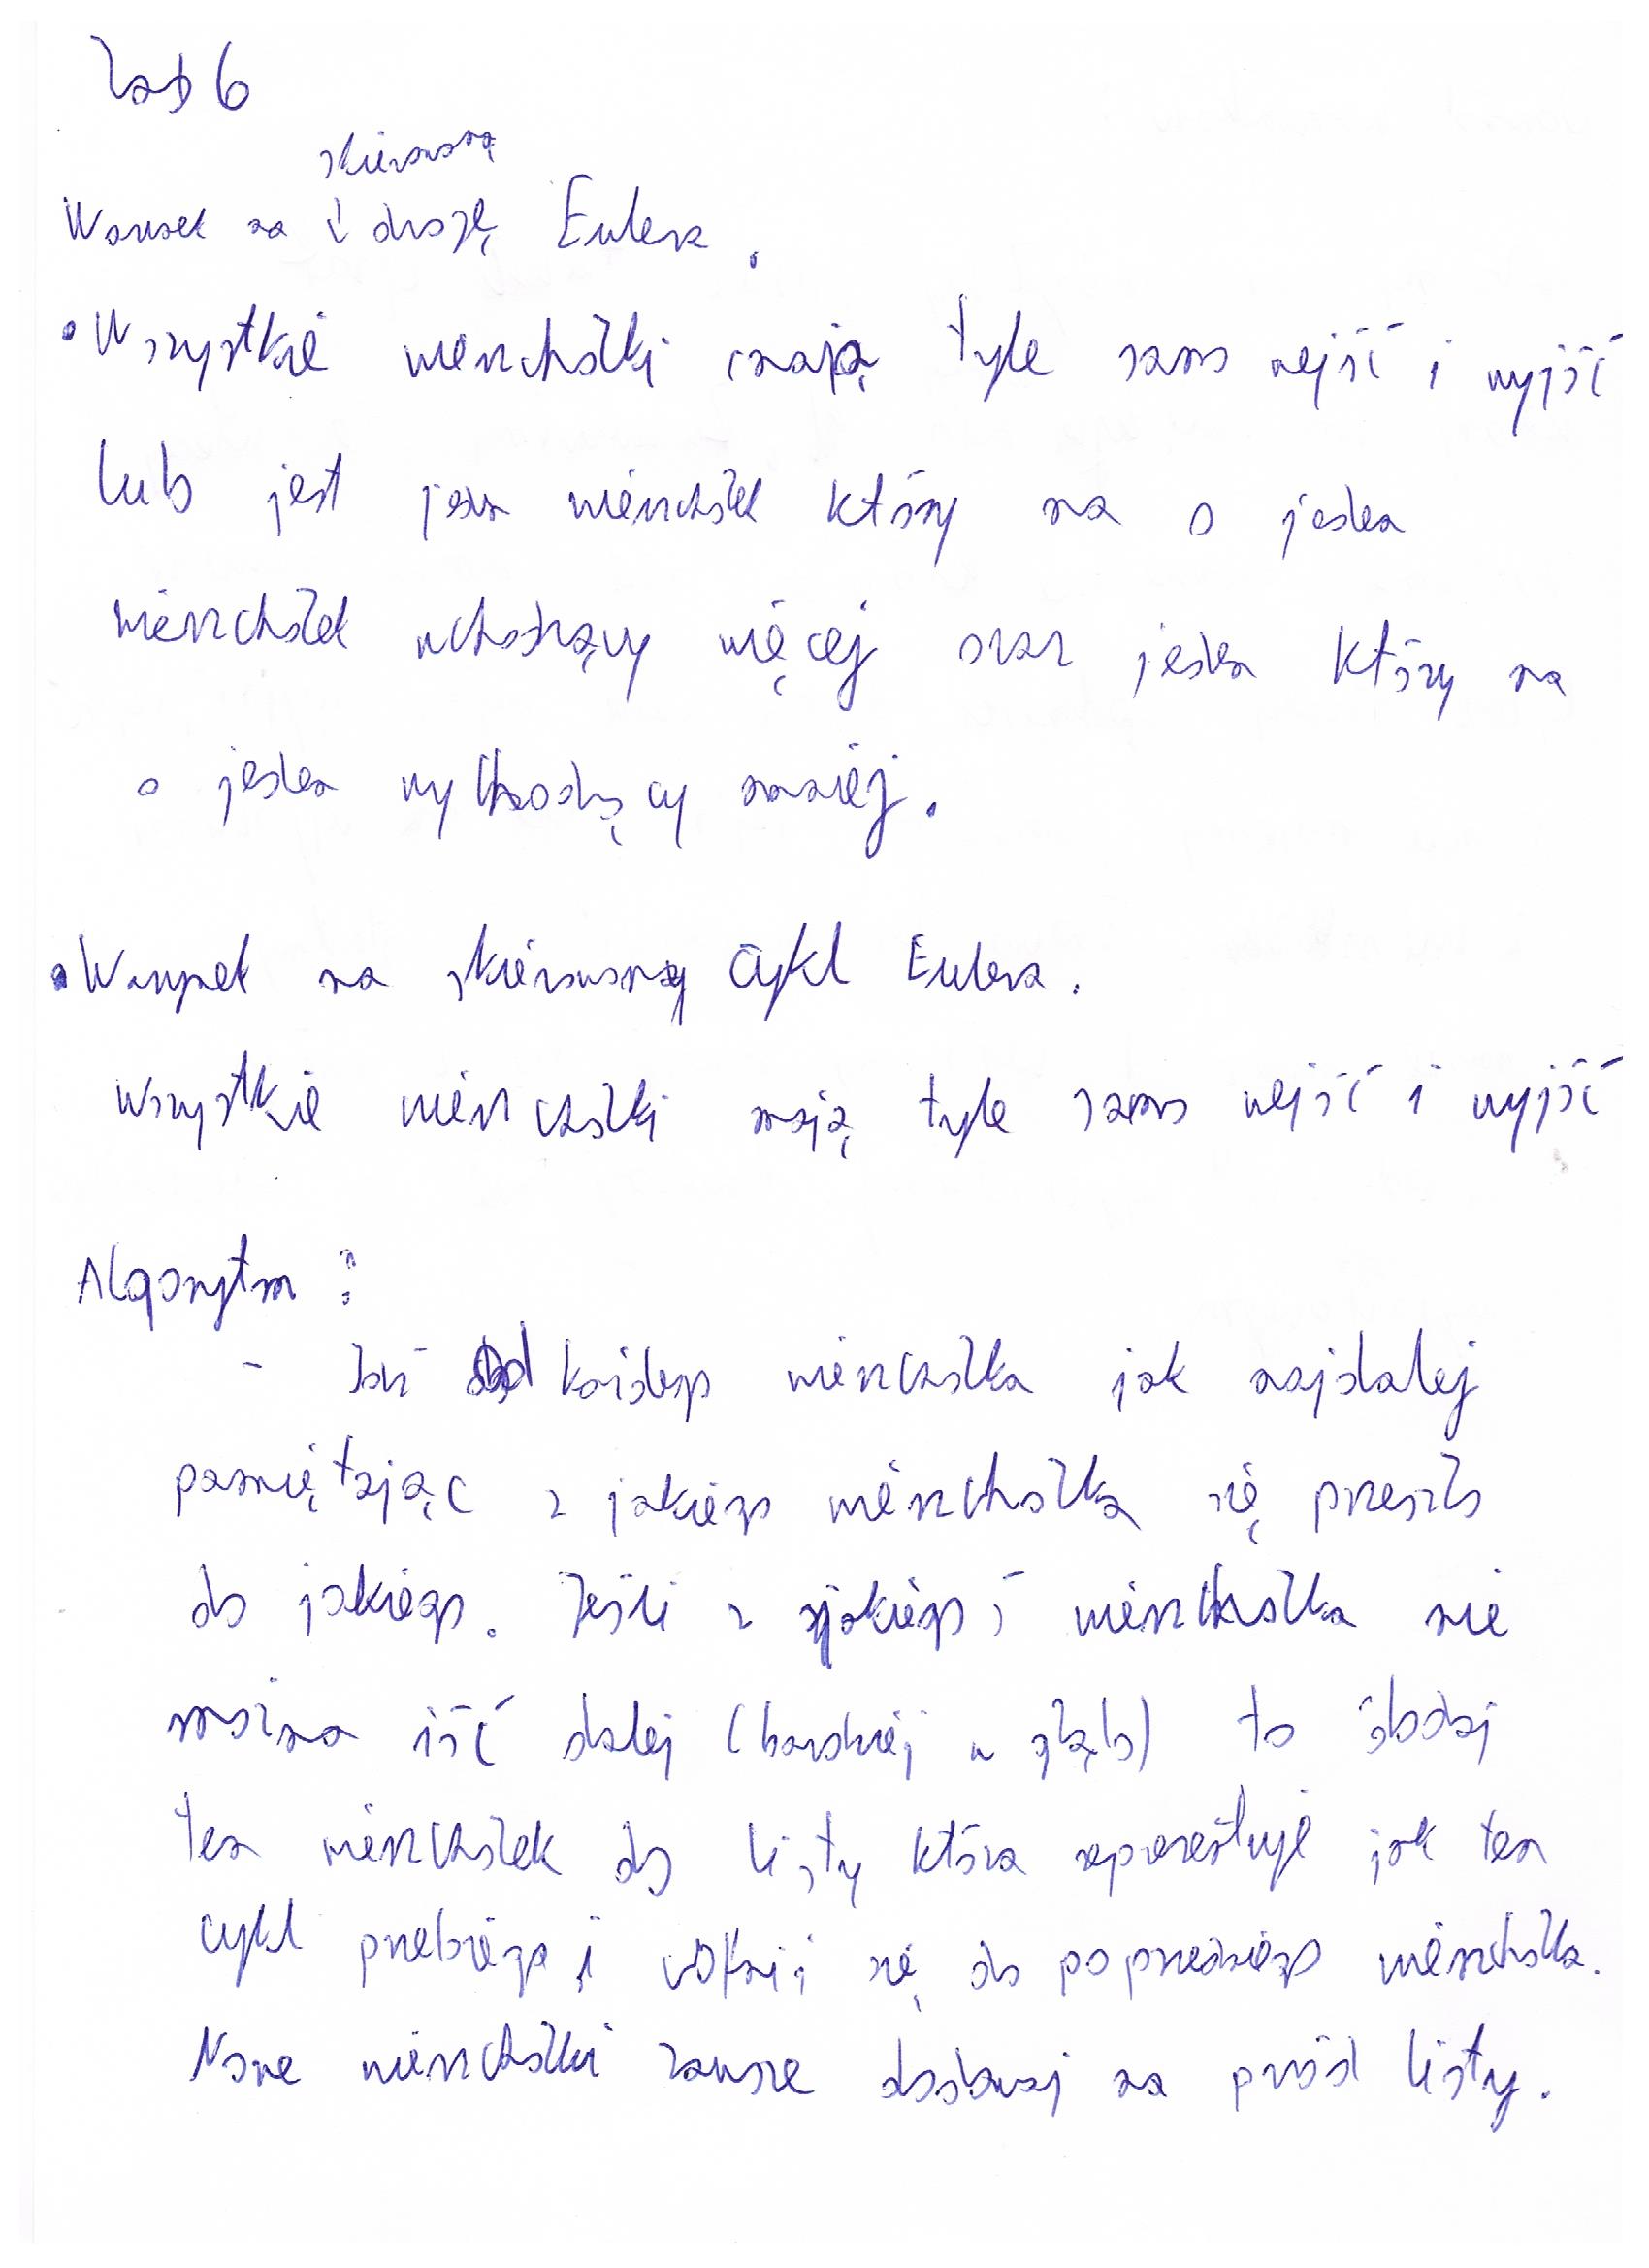 Zad 6
skierowaną
Warunek na drogę Eulera.
• Wszystkie wierzchołki mają tyle samo wejść i wyjść
lub jest jeden wierzchołek który ma o jeden
wierzchołek wchodzący więcej oraz jeden który ma
o jeden wychodzący mniej.
• Warunek na skierowany Cykl Eulera.
Wszystkie wierzchołki mają tyle samo wejść i wyjść
Algorytm :
- Idź od każdego wierzchołka jak najdalej
pamiętając z jakiego wierzchołka się przeszło
do jakiego. Jeśli z jakiegoś wierzchołka nie
można iść dalej (bardziej w głąb) to dodaj
ten wierzchołek do listy która reprezentuje jak ten
cykl przebiega i cofnij się do poprzedniego wierzchołka.
Nowe wierzchołki zawsze dodawaj na przód listy.